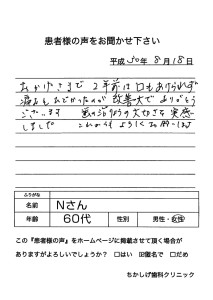 患者様の声をお聞かせ下さい
平成30年8月18日
おかげさまで 2年前は口もあけられず
痛みもひどかったのが 改善大で ありがとう
ございます 歯のちりょうの大切さを実感
しました。 これからも よろしくお願いします
ふりがな
名前 Nさん
年齢 60代 性別 男性・女性
この『患者様の声』をホームページに掲載させて頂く場合が
ありますがよろしいでしょうか？ □はい ☑匿名で □だめ
ちかしげ歯科クリニック